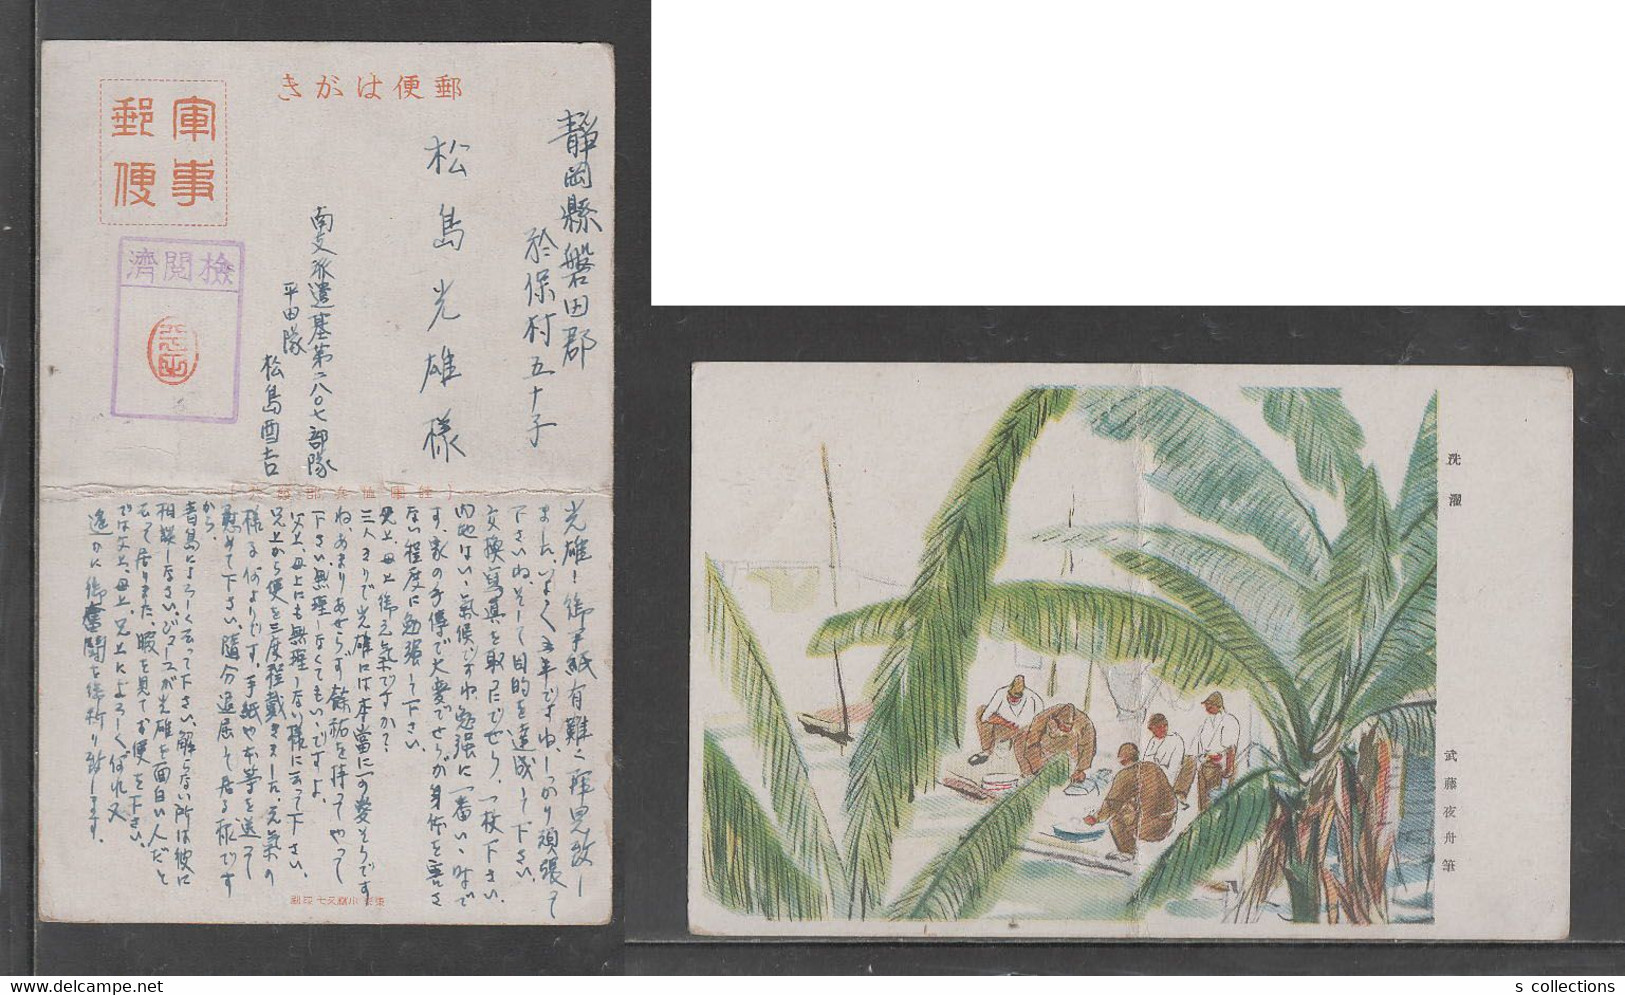 郵便はがき
軍事
郵便
検閲済
静岡縣磐田郡
於保村五十子
松島光雄様
南支派遣基第二八〇七部隊
平田隊
松島酉吉
光雄し御手紙有難く拝見致し
ました、いよ〱五年ですね、しっかり頑張って
下さいね、そして目的を達成して下さい、
交換寫眞を取ったでせう、一枚下さい、
内地はいゝ気候ですね、勉強に一番いゝ時で
す、家の手傳で大変でせうが身体を害さ
ない程度に勉強して下さい、
父上、母上御元気ですか?
三人きりで光雄には本當に可愛そうです
ね、あまりあせらず餘祐を持ってやって
下さい無理しなくてもいゝですよ、
父上、母上にも無理しない様に云って下さい、
兄上から便を三度程戴きました、元気の
様子何よりです、手紙や本等を送って
慰めて下さい、随分退屈して居る様です
から、
青島によろしく云って下さい、解らない所は彼に
相談しなさい、
光雄を面白い人だと
云って居りました、暇を見てお便を下さい、
では父上、母上、兄上によろしく何れ又
遙かに御奮闘を御祈り致します、
洗濯
武藤夜舟筆
s collections